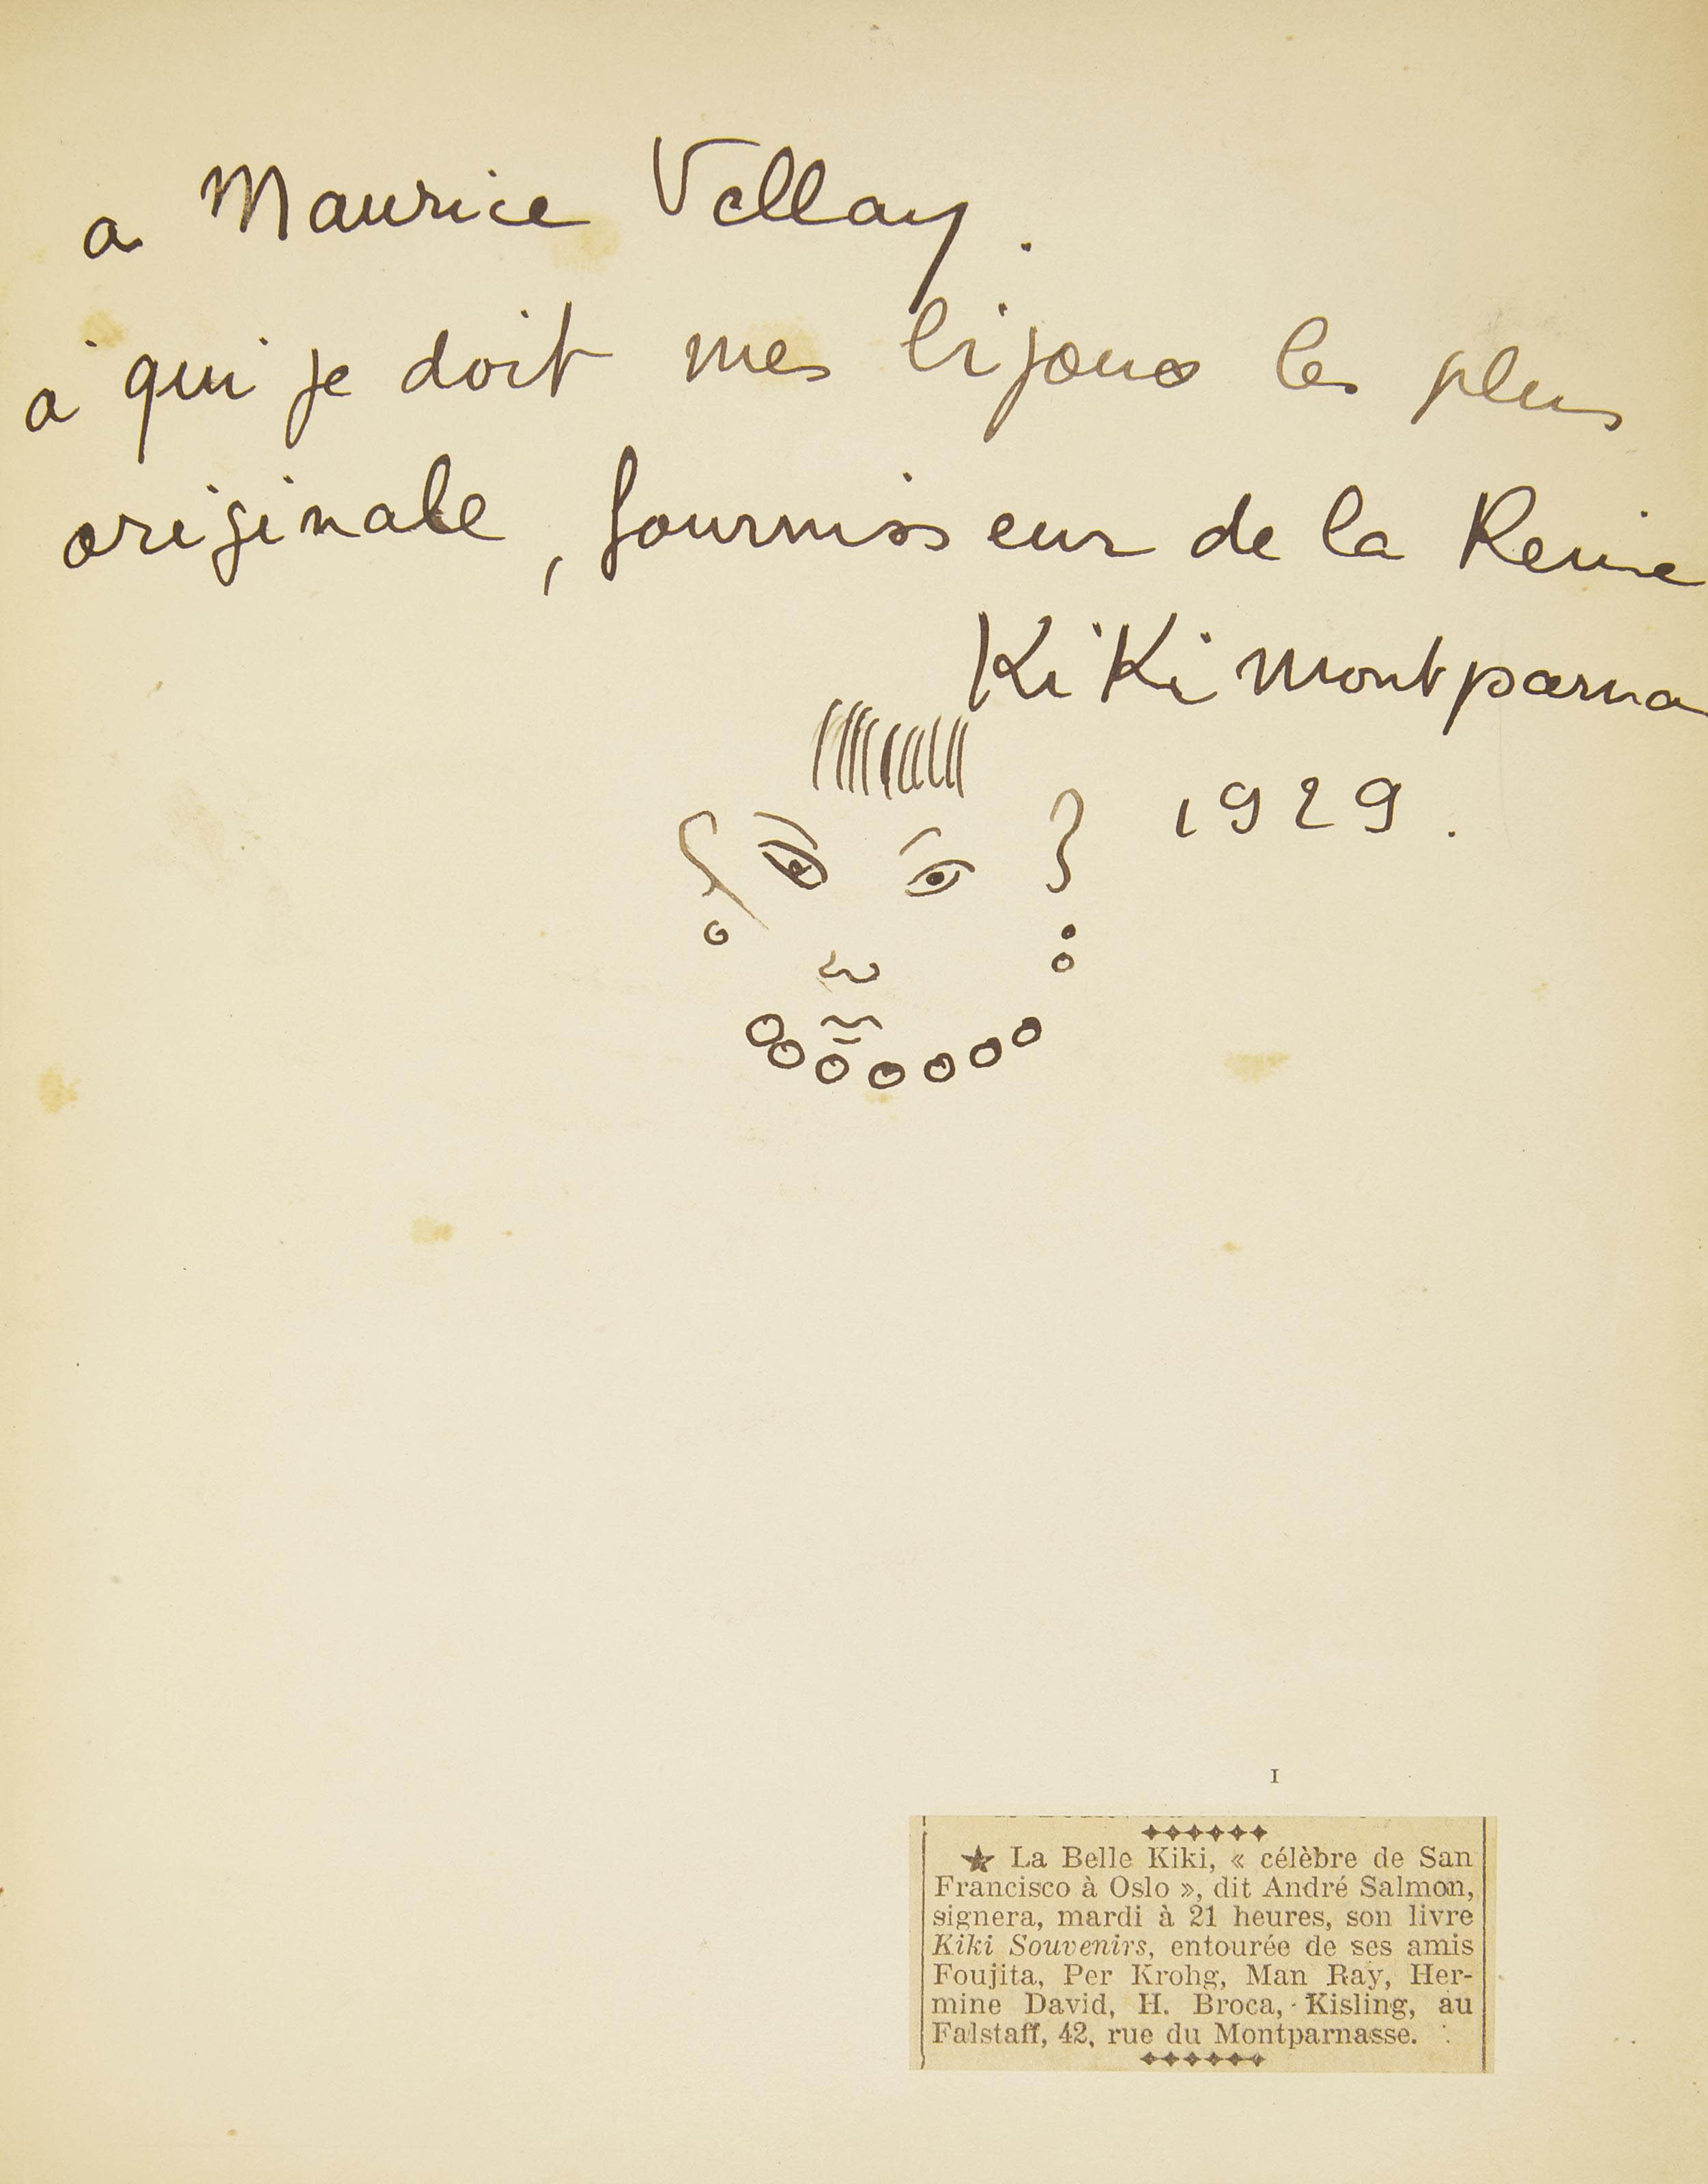 a Maurice Vellay.
a qui je doit mes bijoux les plus
originale, fournisseur de la Reine
KiKi Montparna
1929.
I
★ La Belle Kiki, « célèbre de San
Francisco à Oslo », dit André Salmon,
signera, mardi à 21 heures, son livre
Kiki Souvenirs, entourée de ses amis
Foujita, Per Krohg, Man Ray, Her-
mine David, H. Broca, Kisling, au
Falstaff, 42, rue du Montparnasse.